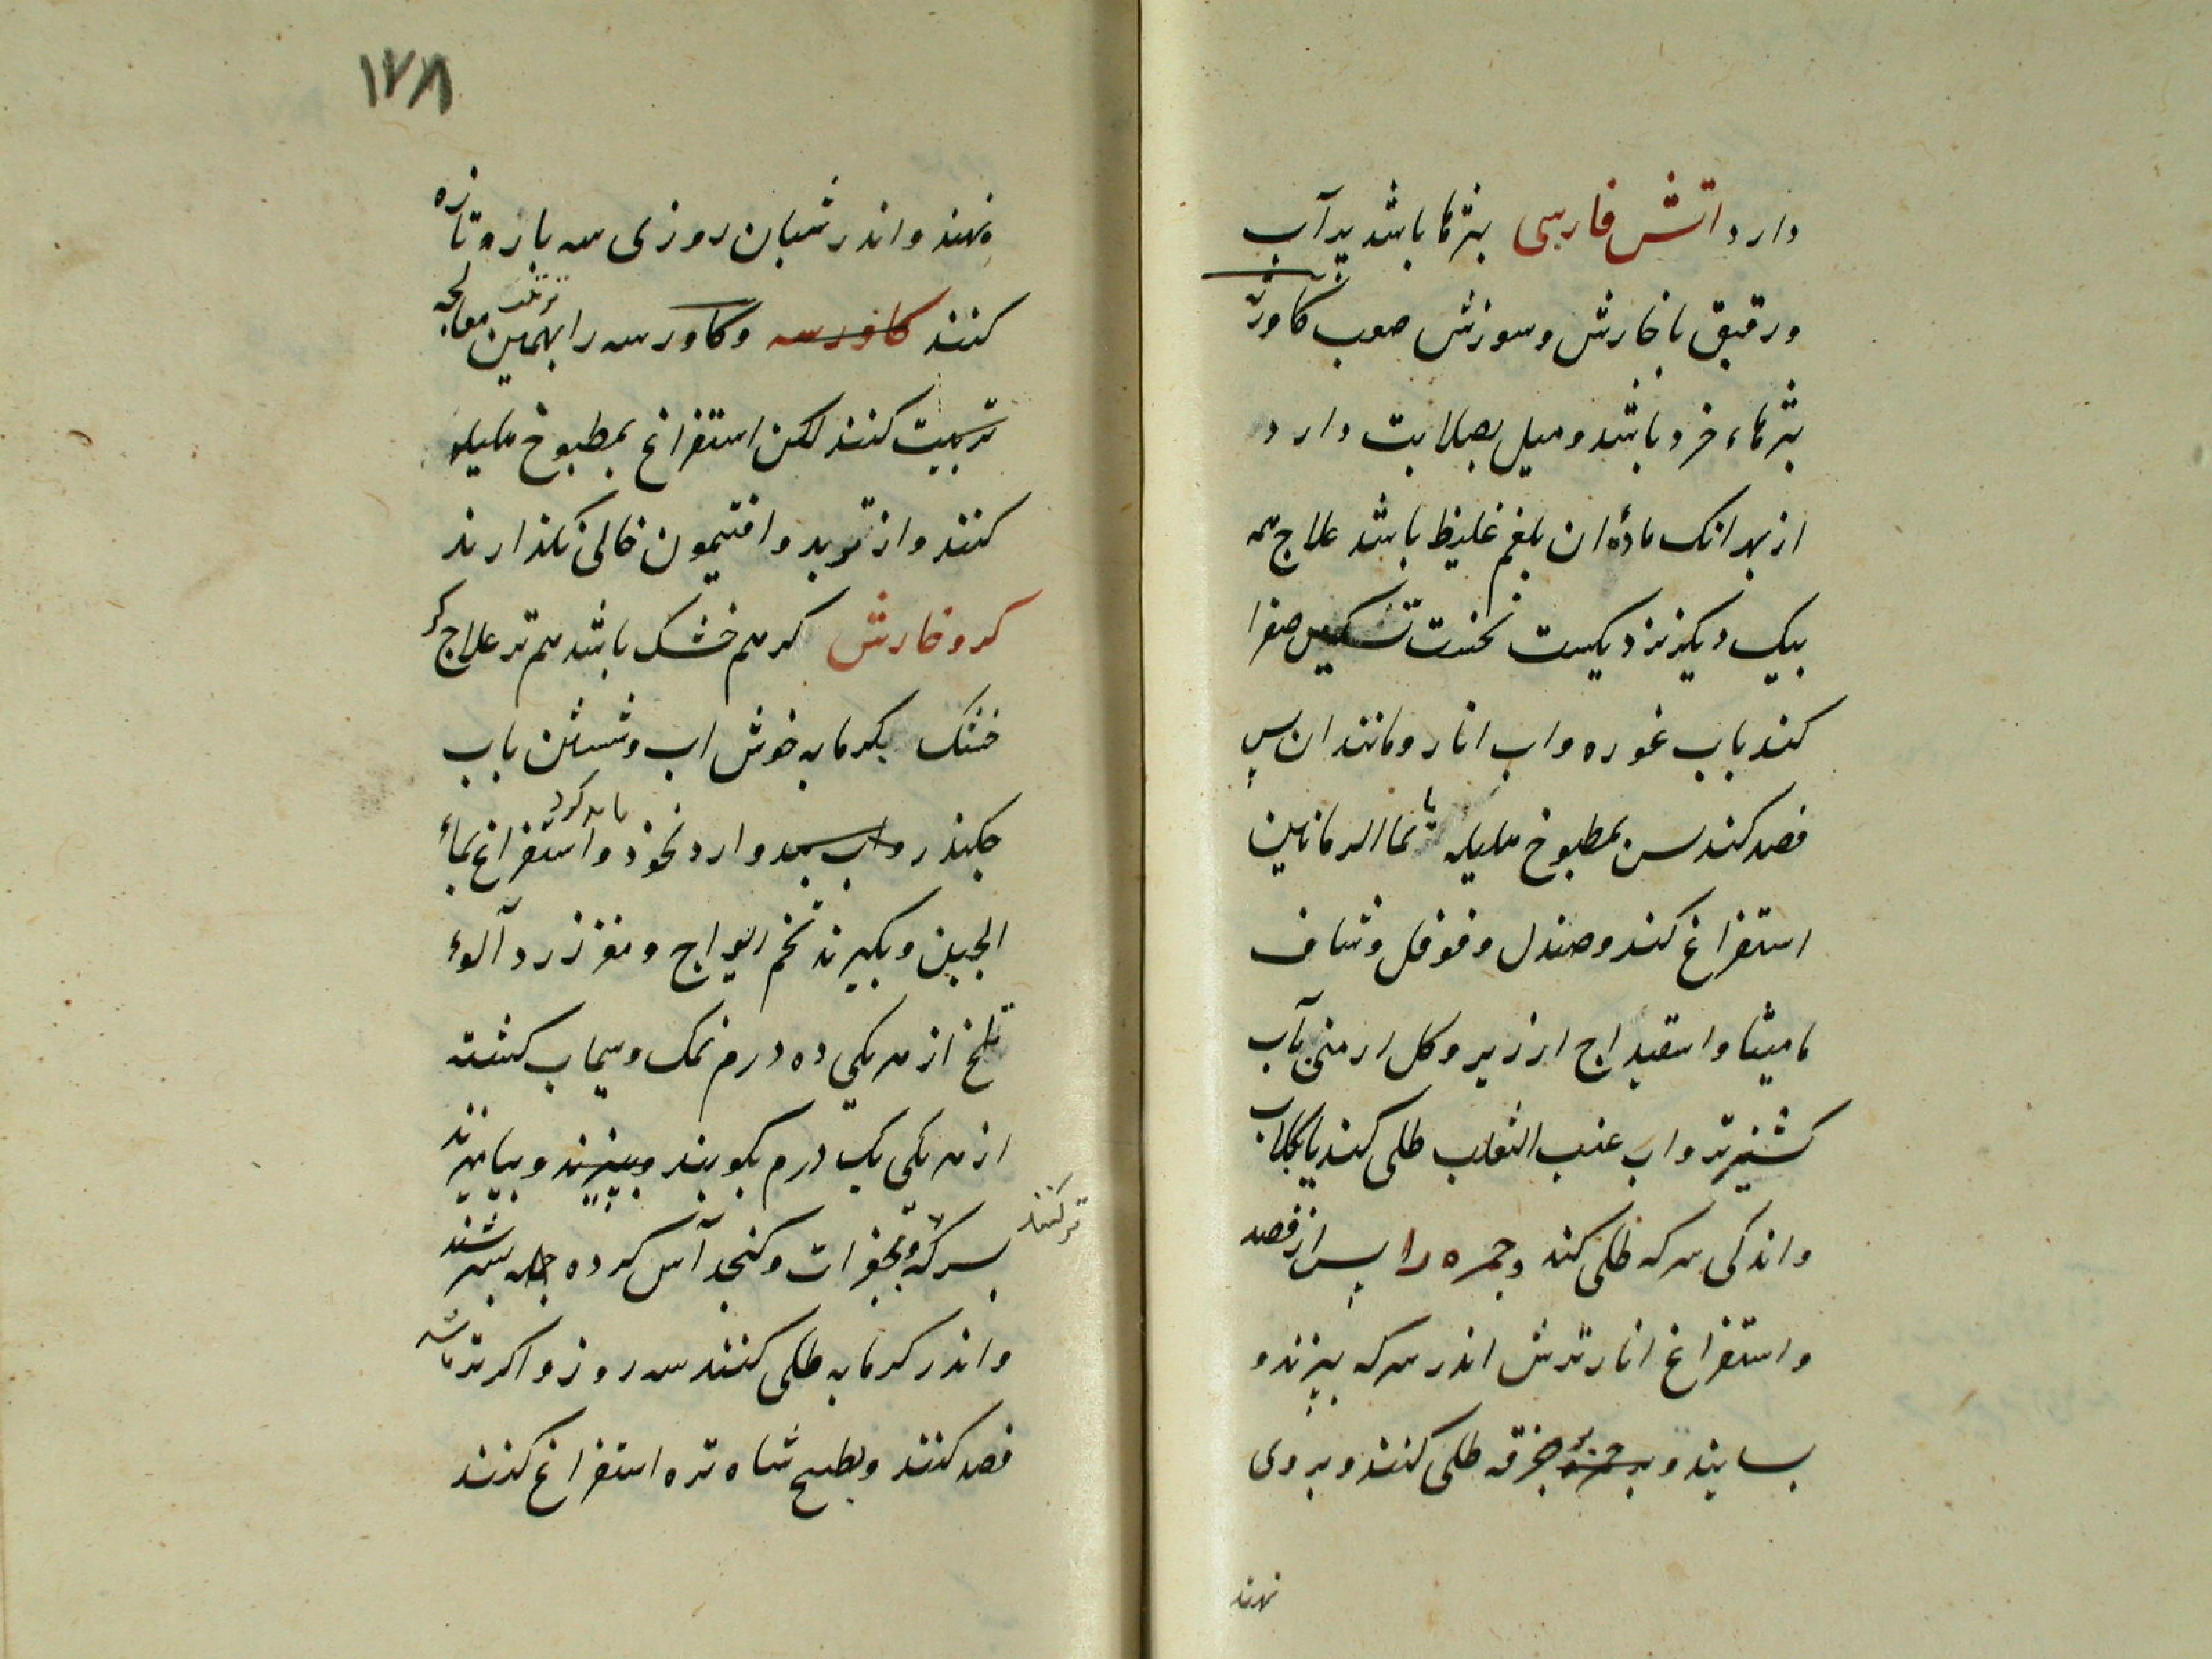 دارد اتش فارسی بثرها باشد پر آب
ورقیق با خارش و سوزش صعب کاورسه
بثرهاء خرد باشد و میل بصلابت دارد
از بهر انک مادۀ ان بلغم غلیظ باشد علاج همه
بیک دیگر نزدیکست نخست تسکین صفرا
کند باب غوره و اب انار و مانند ان پس
فصد کند پس بمطبوخ هلیله یا بما الرمانین
استفراغ کند و صندل و فوفل و شیاف
مامیثا و اسفیداج ارزیر و کل ارمنی بآب
کشنیز تر و اب عنب الثعلب طلی کند یا بکلاب
و اندکی سرکه طلی کند و جمره را پس از فصد
و استفراغ انار ترش اندر سرکه بپزند و
بسایند و بر خرقه طلی کنند و بر وی
نهند
۱۷۸
نهند و اندر شبان روزی سه بار و تازه
کنند کاورسه و کاورسه را بهمین معالجه
تربیت کنند لکن استفراغ بمطبوخ هلیله
کنند و از تربد و افتیمون خالی نکذارند
کر و خارش کر هم خشک باشد هم تر علاج کر
خشک بکرمابه خوش اب و شستن باب
جکندر و اب سبو وارد نخود و استفراغ بماء
باید کرد
الجبن و بکیرند تخم ریواج و مغز زردآلوء
تلخ از هر یکی ده درم نمک و سیماب کشته
از هر یکی یک درم بکوبند و ببیزند و بیامیزند
بسرکه و بخوزات و کنجد آس کرده جمله بسرشند
تر کنند
و اندر کرمابه طلی کنند سه روز و اکر تر باشد
فصد کنند و بطبیخ شاه تره استفراغ کنند